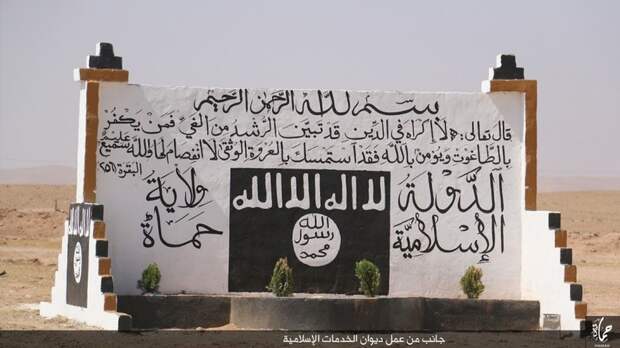 بسم الله الرحمن الرحيم
قال تعالى: لا إكراه في الدين قد تبين الرشد من الغي فمن يكفر
بالطاغوت ويؤمن بالله فقد استمسك بالعروة الوثقى لا انفصام لها والله سميع عليم
البقرة (٢٥٦)
الدولة
الإسلامية
لا اله الا الله
الله
رسول
محمد
ولاية
حماة
لا اله الا الله
جانب من عمل ديوان الخدمات الإسلامية
حماة
HAMAH